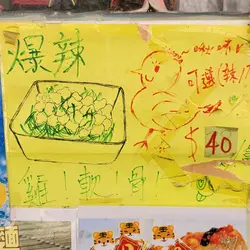 爆辣
啾啾!
可選(辣/
$40
雞!軟!骨!